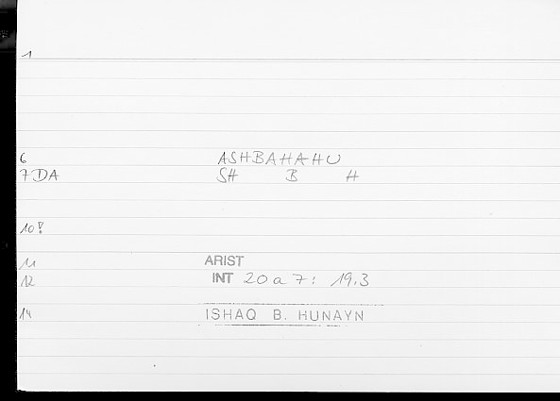 1
6 ASHBAHAHU
7 DA SH B H
10!
11 ARIST
12 INT 20 a 7: 19.3
14 ISHAQ B. HUNAYN